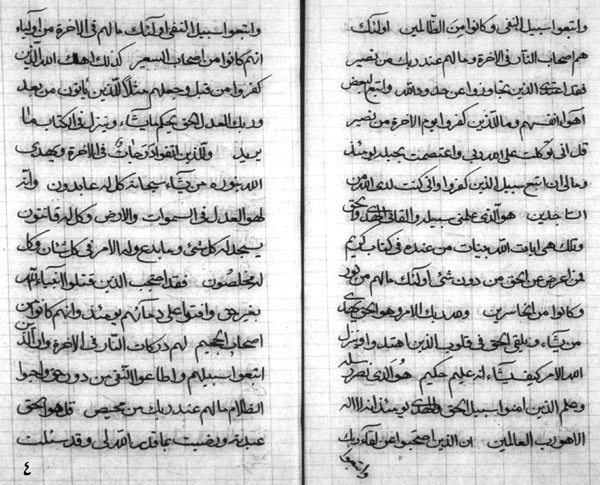 واتبعوا سبيل النفى وكانوا من الظالمين اولئك
هم اصحاب النار فى الاخرة وما لهم عند ربك من نصير
فقد اعتدى الذين تجاوزوا عن حد وحاله واتبع بعض
اهواء انفسهم وما للذين كفروا يوم الاخرة من نصير
قل انى توكلت على الله ربى واعتصمت بحبله يومئذ
وما لى ان اتبع سبيل الذين كفروا وانى كنت لدى الله من
الساجدين هو الذى علمنى سبيله والقانى الهدى بالحق
وتلك هى ايات الله بينات من عنده فى كتاب كريم
فمن اعرض عن الحق من دون شئ اولئك ما لهم من نور
وكانوا من الخاسرين وعند ربك الامر وهو الحق يهدى
من يشاء ويلقى الحق فى قلوب الذين اهتدوا وينزل
الله الامر كيف يشاء انه عليم حكيم هو الذى نصر رسله
وعلم الذين امنوا سبيل الحق والهدى يومئذ انه لا اله
الا هو رب العالمين ان الذين احتجبوا عن لقاء ربك
واتبعوا
واتبعوا سبيل النفى اولئك ما لهم فى الاخرة من اولياء
انهم كانوا من اصحاب السعير كذلك اهلك الله الذين
كفروا من قبل وجعلهم مثلا للذين يأتون من بعد
وربك العدل الحق يحكم ما يشاء وينزل فى الكتاب ما
يريد وللذين اتقوا درجات فى الاخرة ويهدى
الله بنوره من يشاء سبحانه كل له عابدون وانه
لهو العدل فى السموات والارض وكل له قانتون
يسجد له كل شئ وما يدع وله الامر فى كل شأن وكل
له مخلصون فقد احتجب الذين قتلوا انبياء الله
بغير حق وافتوا على دمائهم يومئذ وانهم كانوا من
اصحاب الجحيم لهم دركات النار فى الاخرة وان الذين
اتبعوا سبيلهم واطاعوا النفى من دون حق
الظلام ما لهم عند ربك من محيص قل هو الحق
عبدته ورضيت بما قدر الله لى وقد سئلت
٤